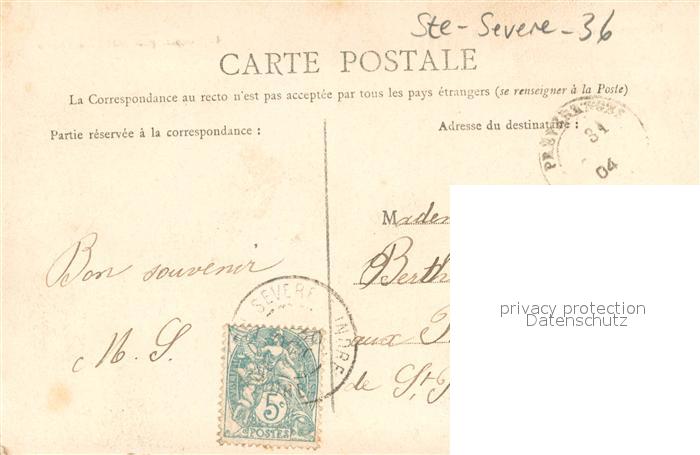 Ste-Severe-36
CARTE POSTALE
La Correspondance au recto n'est pas acceptée par tous les pays étrangers (se renseigner à la Poste)
Partie réservée à la correspondance :
Adresse du destinataire :
31
04
Bon souvenir
M. S.
Berth
aux
de St.
SEVERE INDRE
5c
POSTES
privacy protection
Datenschutz